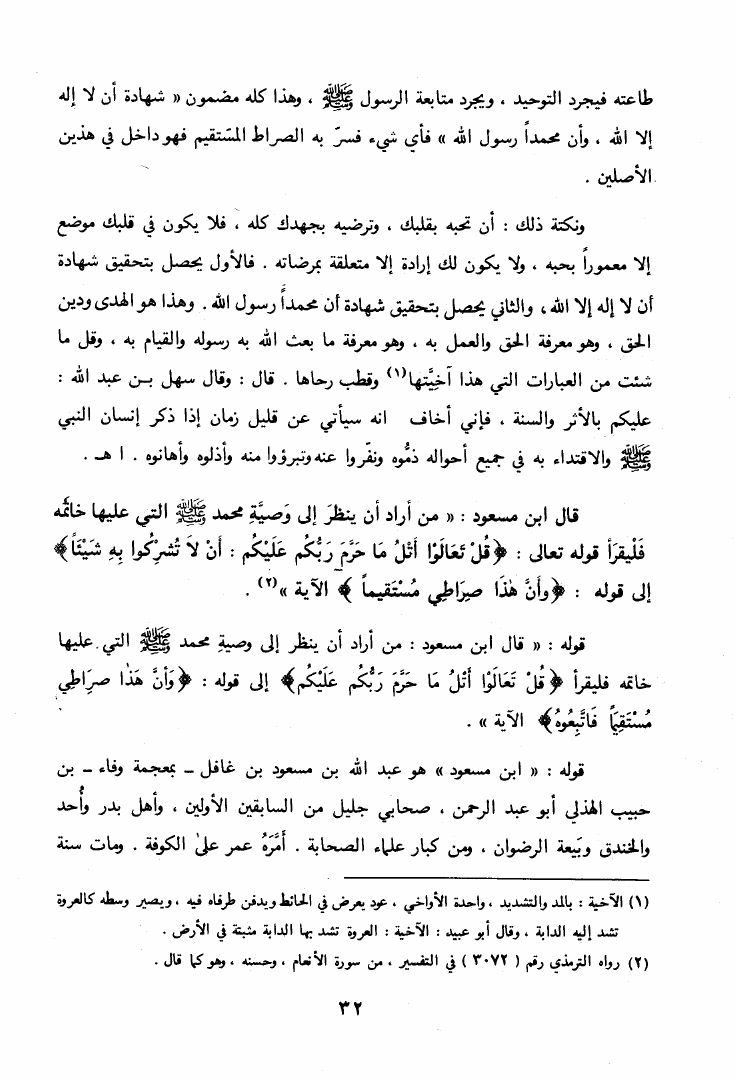 طاعته فيجرد التوحيد ، ويجرد متابعة الرسول ﷺ ، وهذا كله مضمون « شهادة أن لا إله
إلا الله ، وأن محمداً رسول الله » فأي شيء فسرّ به الصراط المسّتقيم فهو داخل في هذين
الأصلين .
ونكتة ذلك : أن تحبه بقلبك ، وترضيه بجهدك كله ، فلا يكون في قلبك موضع
إلا معموراً بحبه ، ولا يكون لك إرادة إلا متعلقة بمرضاته . فالأول يحصل بتحقيق شهادة
أن لا إله إلا الله ، والثاني يحصل بتحقيق شهادة أن محمداً رسول الله . وهذا هو الهدى ودين
الحق ، وهو معرفة الحق والعمل به ، وهو معرفة ما بعث الله به رسوله والقيام به ، وقل ما
شئت من العبارات التي هذا آخِيَّتها(١) وقطب رحاها . قال : وقال سهل بـن عبد الله :
عليكم بالأثر والسنة ، فإني أخاف انه سيأتي عن قليل زمان إذا ذكر إنسان النبي
ﷺ والاقتداء به في جميع أحواله ذمُّوه ونفّروا عنه وتبرؤوا منه وأذلوه وأهانوه . ا هـ .
قال ابن مسعود : « من أراد أن ينظرَ إلى وَصيَّةِ محمد ﷺ التي عليها خاتَمُه
فَلْيقرَأ قوله تعالى : ﴿قُلْ تَعَالَوْا أَتْلُ مَا حَرَّمَ رَبُّكُم عَلَيْكُم : أَنْ لاَ تُشرِكُوا بِهِ شَيْئاً﴾
إلى قوله : ﴿وأَنَّ هٰذَا صِرَاطِي مُسْتَقيماً ﴾ الآية »(٢) .
قوله : « قال ابن مسعود : من أراد أن ينظر إلى وصيةِ محمد ﷺ التي عليها
خاتمه فليقرأ ﴿قُلْ تَعَالَوْا أَتْلُ مَا حَرَّمَ رَبُّكُم عَلَيْكُم﴾ إلى قوله : ﴿وَأَنَّ هَذَا صرَاطِي
مُسْتَقِيمًا فَاتَّبِعُوهُ﴾ الآية » .
قوله : « ابن مسعود » هو عبد الله بن مسعود بن غافل ــ بمعجمة وفاء ــ بن
حبيب الهذلي أبو عبد الرحمن ، صحابي جليل من السابقين الأولين ، وأهل بدر وأُحد
والخندق وبَيعة الرضوان ، ومن كبار علماء الصحابة . أمَّرَهُ عمر علىٰ الكوفة . ومات سنة
(١) الآخية : بالمد والتشديد ، واحدة الأواخي ، عود يعرض في الحائط ويدفن طرفاه فيه ، ويصير وسطه كالعروة
تشد إليه الدابة ، وقال أبو عبيد : الآخية : العروة تشد بها الدابة مثبتة في الأرض .
(٢) رواه الترمذي رقم ( ٣٠٧٢ ) في التفسير ، من سورة الأنعام ، وحسنه ، وهو كما قال .
٣٢